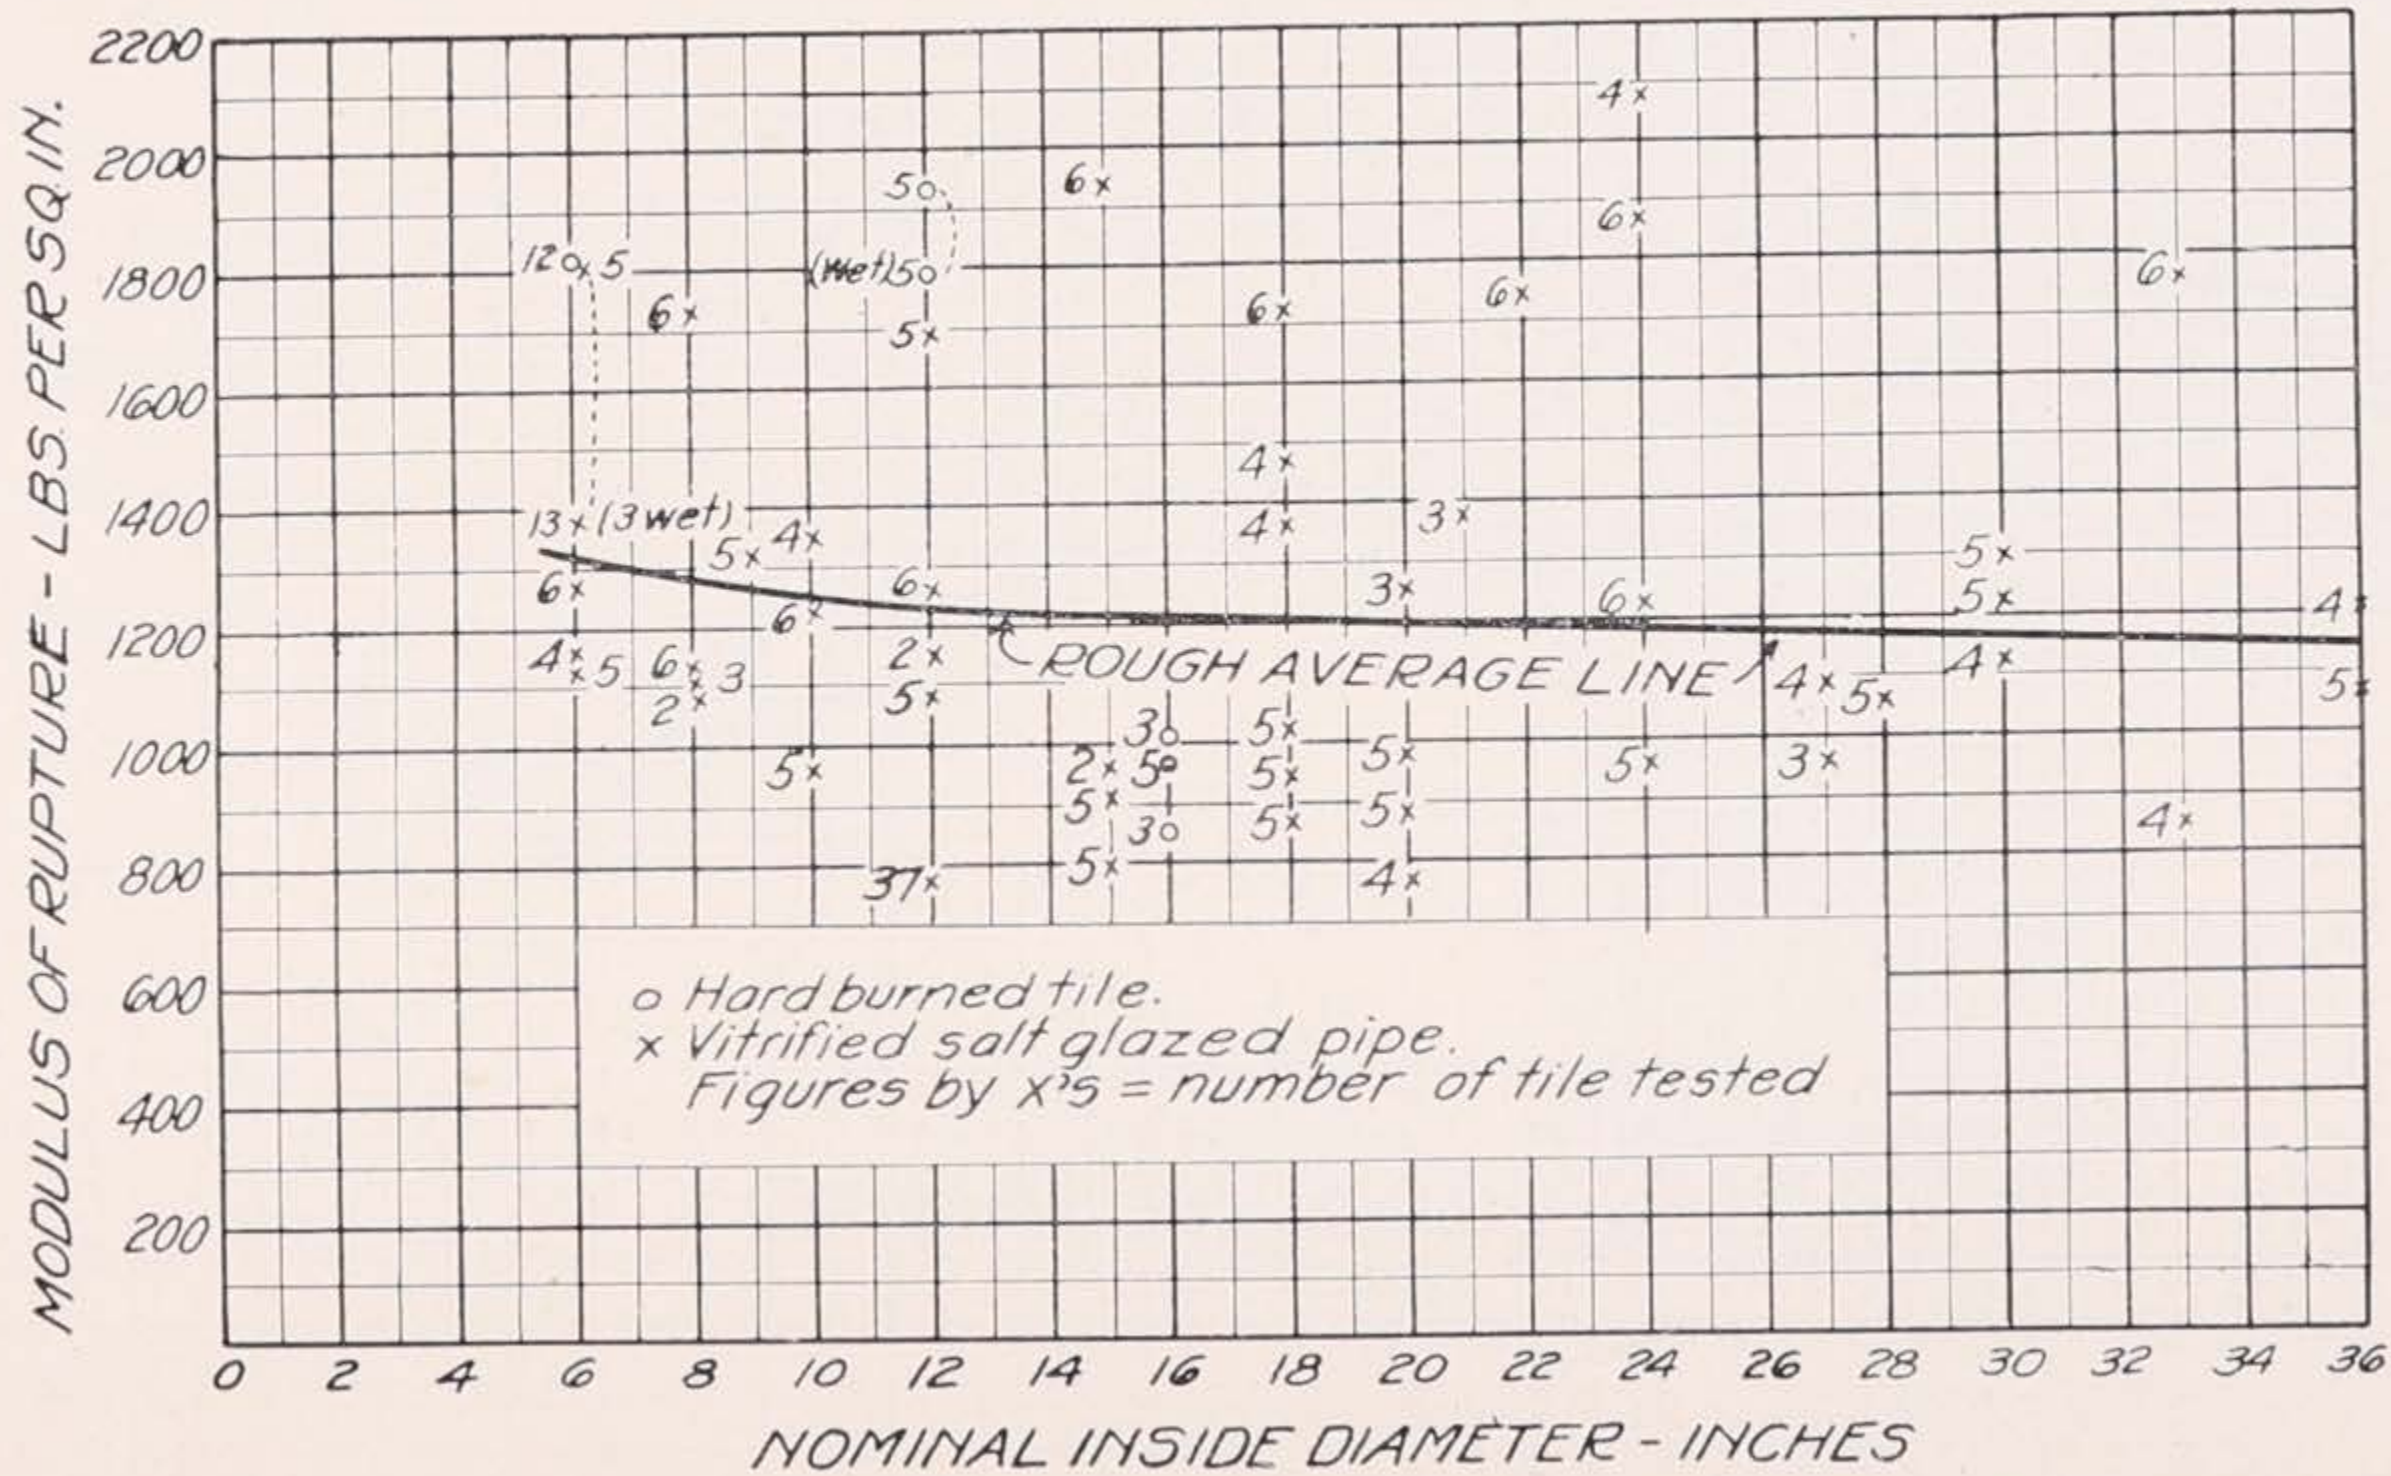 MODULUS OF RUPTURE - LBS. PER SQ. IN.
2200
2000
1800
1600
1400
1200
1000
800
600
400
200
4x
5o 6x
6x
12o x 5 (Wet)5o 6x
6x 6x 6x
5x
4x
13x (3 wet) 4x 3x
5x 4x
6x 6x 3x 6x 5x 5x 4x
6x
4x x5 6x x3 2x 2x 5x
ROUGH AVERAGE LINE
4x 5x 4x 5x
3o 5x
5x 2x 5o 5x 5x 5x 3x
5x 3o 5x 5x 4x
37x 5x 4x
o Hard burned tile.
x Vitrified salt glazed pipe.
Figures by x's = number of tile tested
0 2 4 6 8 10 12 14 16 18 20 22 24 26 28 30 32 34 36
NOMINAL INSIDE DIAMETER - INCHES